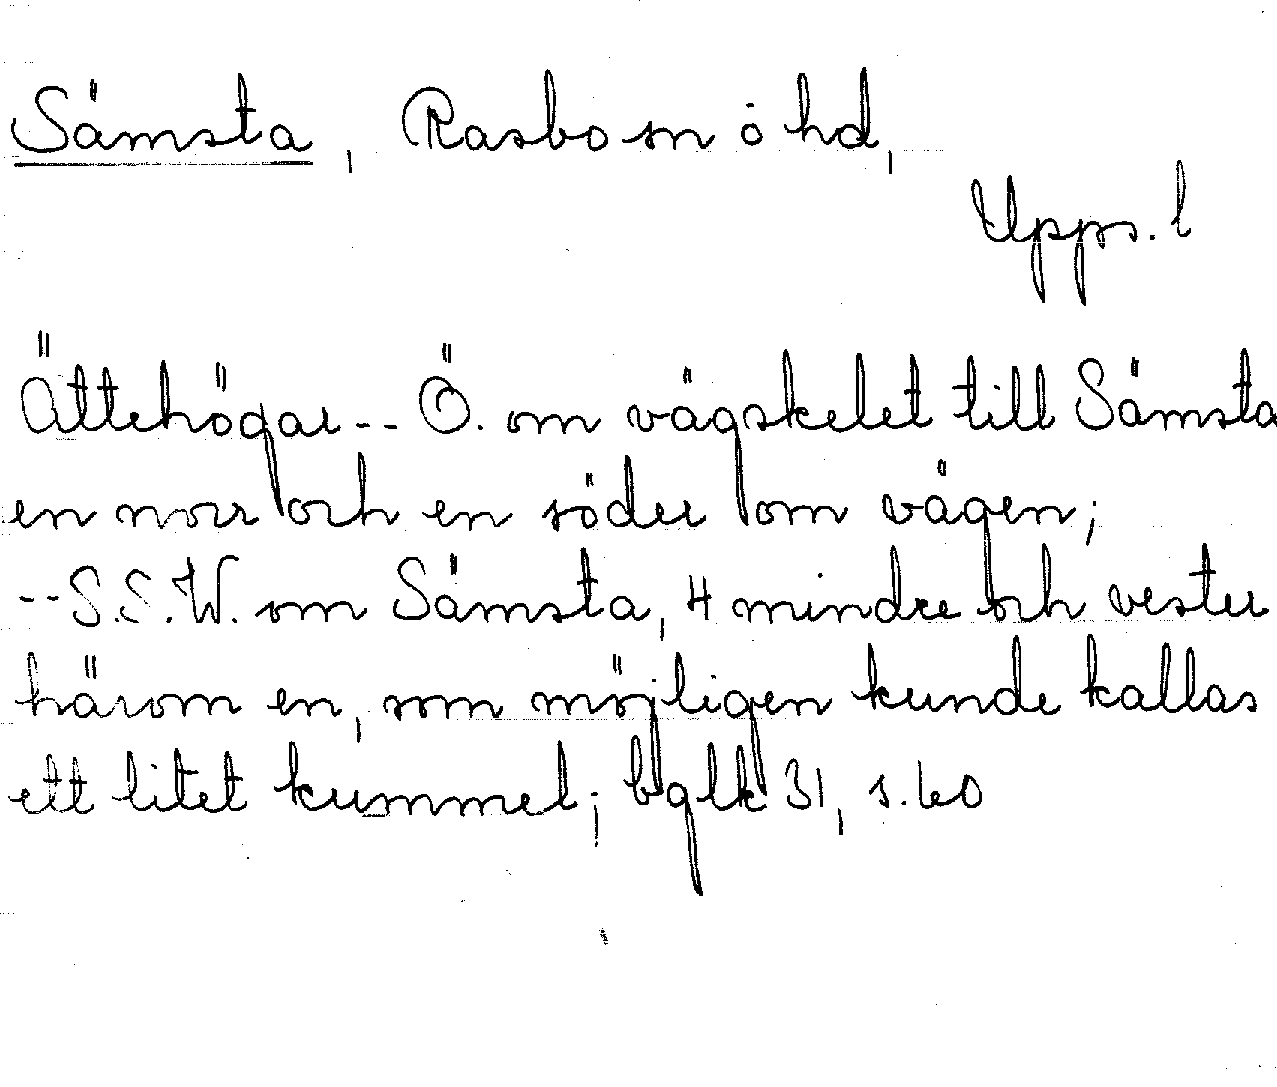 Sämsta, Rasbo sn o hd,
Upps. l
Ättehögar -- Ö. om vägskelet till Sämsta
en norr och en söder om vägen;
-- S.S.W. om Sämsta, 4 mindre och vester
härom en, som möjligen kunde kallas
ett litet kummel; bglk 31, s. 60